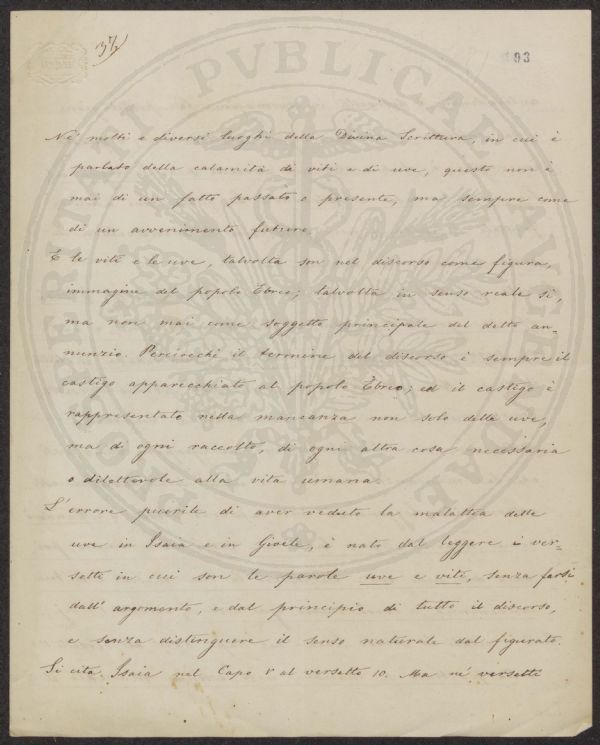 37
193
Ne' molti e diversi luoghi della Divina Scrittura, in cui è
parlato della calamità di viti e di uve, questo non è
mai di un fatto passato o presente, ma sempre come
di un avvenimento futuro.
E le viti e le uve, talvolta son nel discorso come figura,
immagine del popolo Ebreo; talvolta in senso reale sì,
ma non mai come soggetto principale del detto an=
nunzio. Perciocchè il termine del discorso è sempre il
castigo apparecchiato al popolo Ebreo; ed il castigo è
rappresentato nella mancanza non solo delle uve,
ma di ogni raccolto, di ogni altra cosa necessaria
o dilettevole alla vita umana.
L'errore puerile di aver veduto la malattia delle
uve in Isaia e in Gioele, è nato dal leggere i ver=
setti in cui son le parole uve e viti, senza farsi
dall' argomento, e dal principio di tutto il discorso,
e senza distinguere il senso naturale dal figurato.
Si cita Isaia nel Capo V al versetto 10. Ma nè versetti